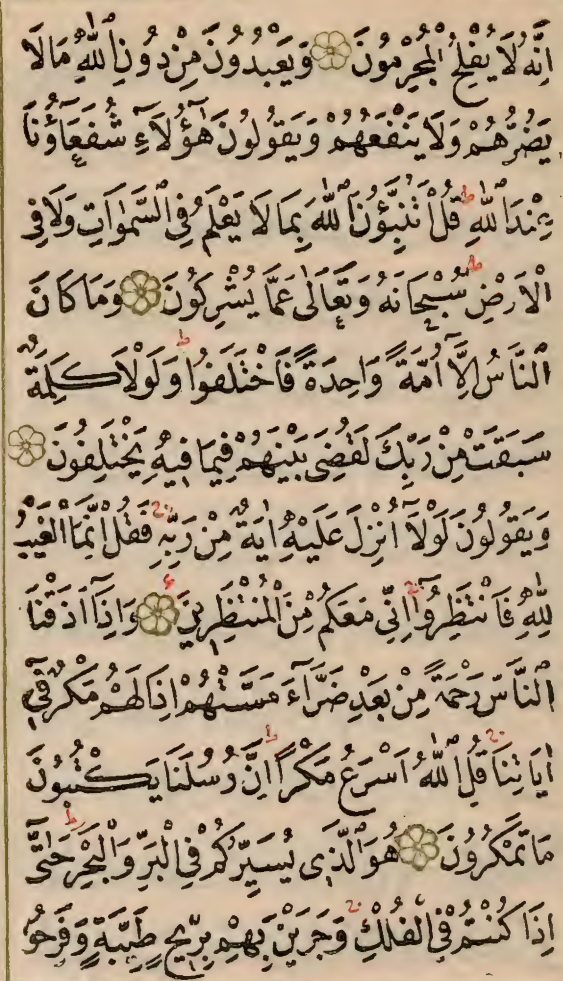 اِنَّهُ لَا يُفْلِحُ الْمُجْرِمُونَ وَيَعْبُدُونَ مِنْ دُونِ اللّٰهِ مَالَا
يَضُرُّهُمْ وَلَا يَنْفَعُهُمْ وَيَقُولُونَ هٰٓؤُلَاۤءِ شُفَعَاۤؤُنَا
عِنْدَ اللّٰهِ ط قُلْ اَتُنَبِّؤُنَ اللّٰهَ بِمَا لَا يَعْلَمُ فِي السَّمٰوَاتِ وَلَا فِي
الْاَرْضِ ط سُبْحَانَهُ وَتَعَالٰى عَمَّا يُشْرِكُونَ وَمَا كَانَ
النَّاسُ اِلَّٓا اُمَّةً وَاحِدَةً فَاخْتَلَفُوا ط وَلَوْلَا كَلِمَةٌ
سَبَقَتْ مِنْ رَبِّكَ لَقُضِيَ بَيْنَهُمْ فِيمَا فِيهِ يَخْتَلِفُونَ
وَيَقُولُونَ لَوْلَٓا اُنْزِلَ عَلَيْهِ اٰيَةٌ مِنْ رَبِّهِ فَقُلْ اِنَّمَا الْغَيْبُ
لِلّٰهِ فَانْتَظِرُوٓا اِنِّي مَعَكُمْ مِنَ الْمُنْتَظِرِينَ وَاِذَٓا اَذَقْنَا
النَّاسَ رَحْمَةً مِنْ بَعْدِ ضَرَّٓاءَ مَسَّتْهُمْ اِذَا لَهُمْ مَكْرٌ فِيٓ
اٰيَاتِنَا قُلِ اللّٰهُ اَسْرَعُ مَكْرًا ط اِنَّ رُسُلَنَا يَكْتُبُونَ
مَا تَمْكُرُونَ هُوَ الَّذِي يُسَيِّرُكُمْ فِي الْبَرِّ وَالْبَحْرِ ط حَتّٰٓى
اِذَا كُنْتُمْ فِي الْفُلْكِ وَجَرَيْنَ بِهِمْ بِرِيحٍ طَيِّبَةٍ وَفَرِحُو